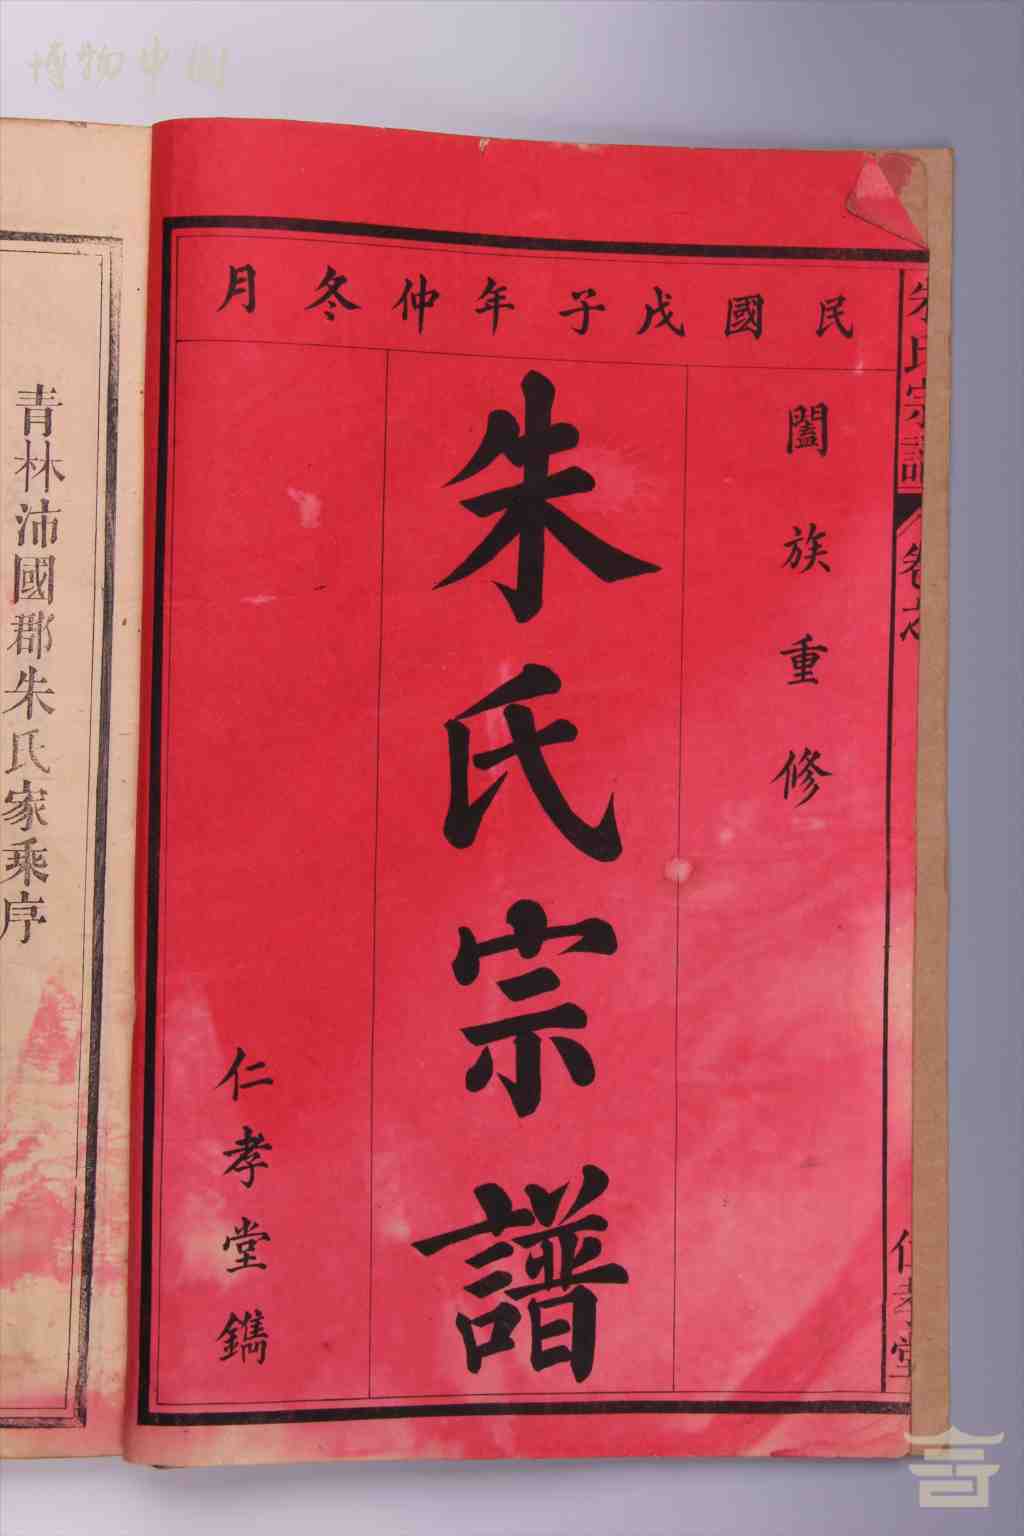 博物中國
民國戊子年仲冬月
闔族重修
朱氏宗譜
仁孝堂鐫
朱氏宗譜
卷之
仁孝堂
青林沛國郡朱氏家乘序